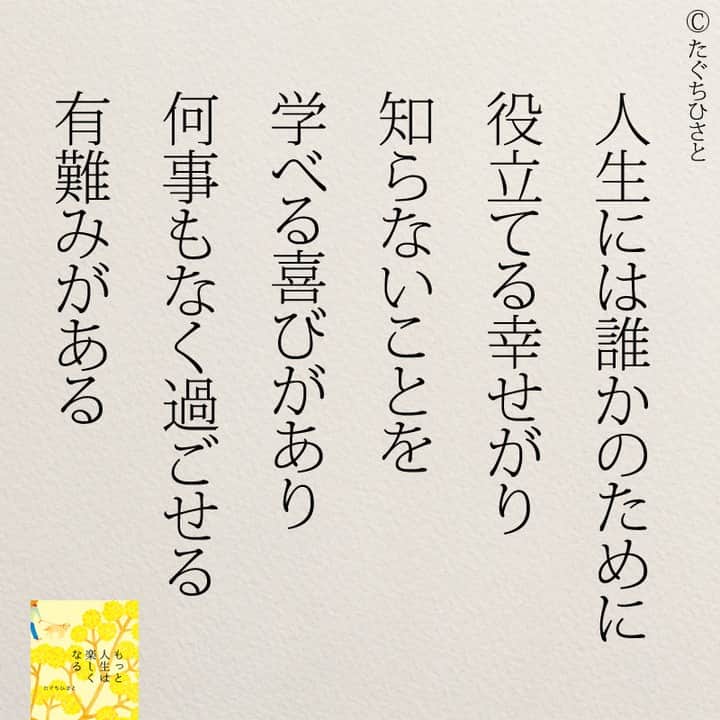 ©たぐちひさと
人生には誰かのために
役立てる幸せがり
知らないことを
学べる喜びがあり
何事もなく過ごせる
有難みがある
もっと
人生は
楽しく
なる
たぐちひさと